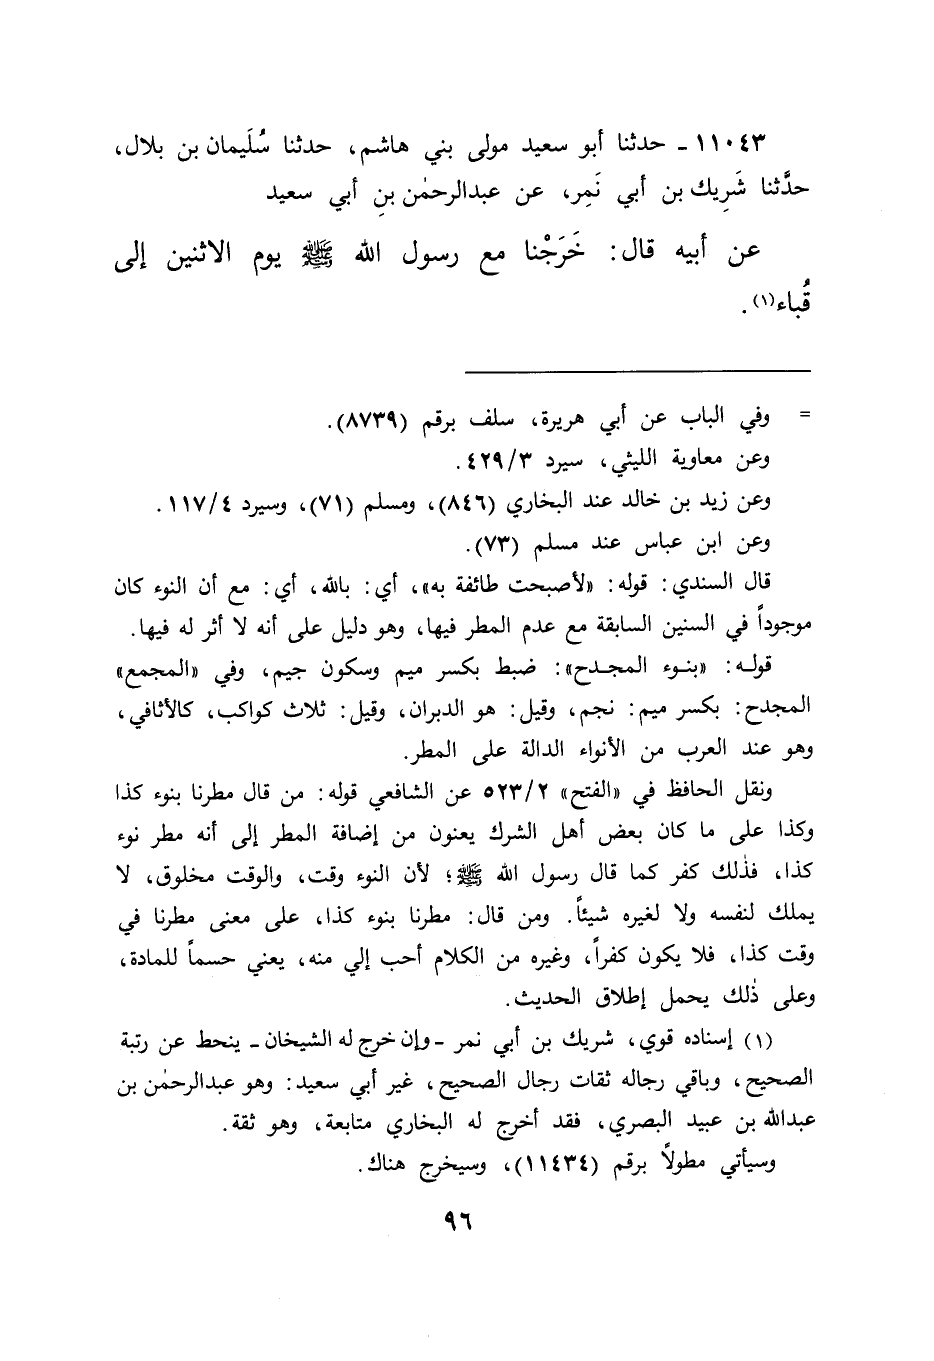 ١١٠٤٣ - حدثنا أبو سعيد مولى بني هاشم، حدثنا سُلَيمان بن بلال،
حدَّثنا شَرِيك بن أبي نَمِر، عن عبدالرحمٰن بنِ أبي سعيد
عن أبيه قال: خَرَجْنا مع رسول الله ﷺ يوم الاثنين إلى
قُباء(١).
= وفي الباب عن أبي هريرة، سلف برقم (٨٧٣٩).
وعن معاوية الليثي، سيرد ٤٢٩/٣.
وعن زيد بن خالد عند البخاري (٨٤٦)، ومسلم (٧١)، وسيرد ١١٧/٤.
وعن ابن عباس عند مسلم (٧٣).
قال السندي: قوله: «لأصبحت طائفة به»، أي: بالله، أي: مع أن النوء كان
موجوداً في السنين السابقة مع عدم المطر فيها، وهو دليل على أنه لا أثر له فيها.
قوله: «بنوء المجدح»: ضبط بكسر ميم وسكون جيم، وفي «المجمع»
المجدح: بكسر ميم: نجم، وقيل: هو الدبران، وقيل: ثلاث كواكب، كالأثافي،
وهو عند العرب من الأنواء الدالة على المطر.
ونقل الحافظ في «الفتح» ٥٢٣/٢ عن الشافعي قوله: من قال مطرنا بنوء كذا
وكذا على ما كان بعض أهل الشرك يعنون من إضافة المطر إلى أنه مطر نوء
كذا، فذٰلك كفر كما قال رسول الله ﷺ؛ لأن النوء وقت، والوقت مخلوق، لا
يملك لنفسه ولا لغيره شيئاً. ومن قال: مطرنا بنوء كذا، على معنى مطرنا في
وقت كذا، فلا يكون كفراً، وغيره من الكلام أحب إلي منه، يعني حسماً للمادة،
وعلى ذٰلك يحمل إطلاق الحديث.
(١) إسناده قوي، شريك بن أبي نمر -وإن خرج له الشيخان- ينحط عن رتبة
الصحيح، وباقي رجاله ثقات رجال الصحيح، غير أبي سعيد: وهو عبدالرحمٰن بن
عبدالله بن عبيد البصري، فقد أخرج له البخاري متابعة، وهو ثقة.
وسيأتي مطولاً برقم (١١٤٣٤)، وسيخرج هناك.
٩٦